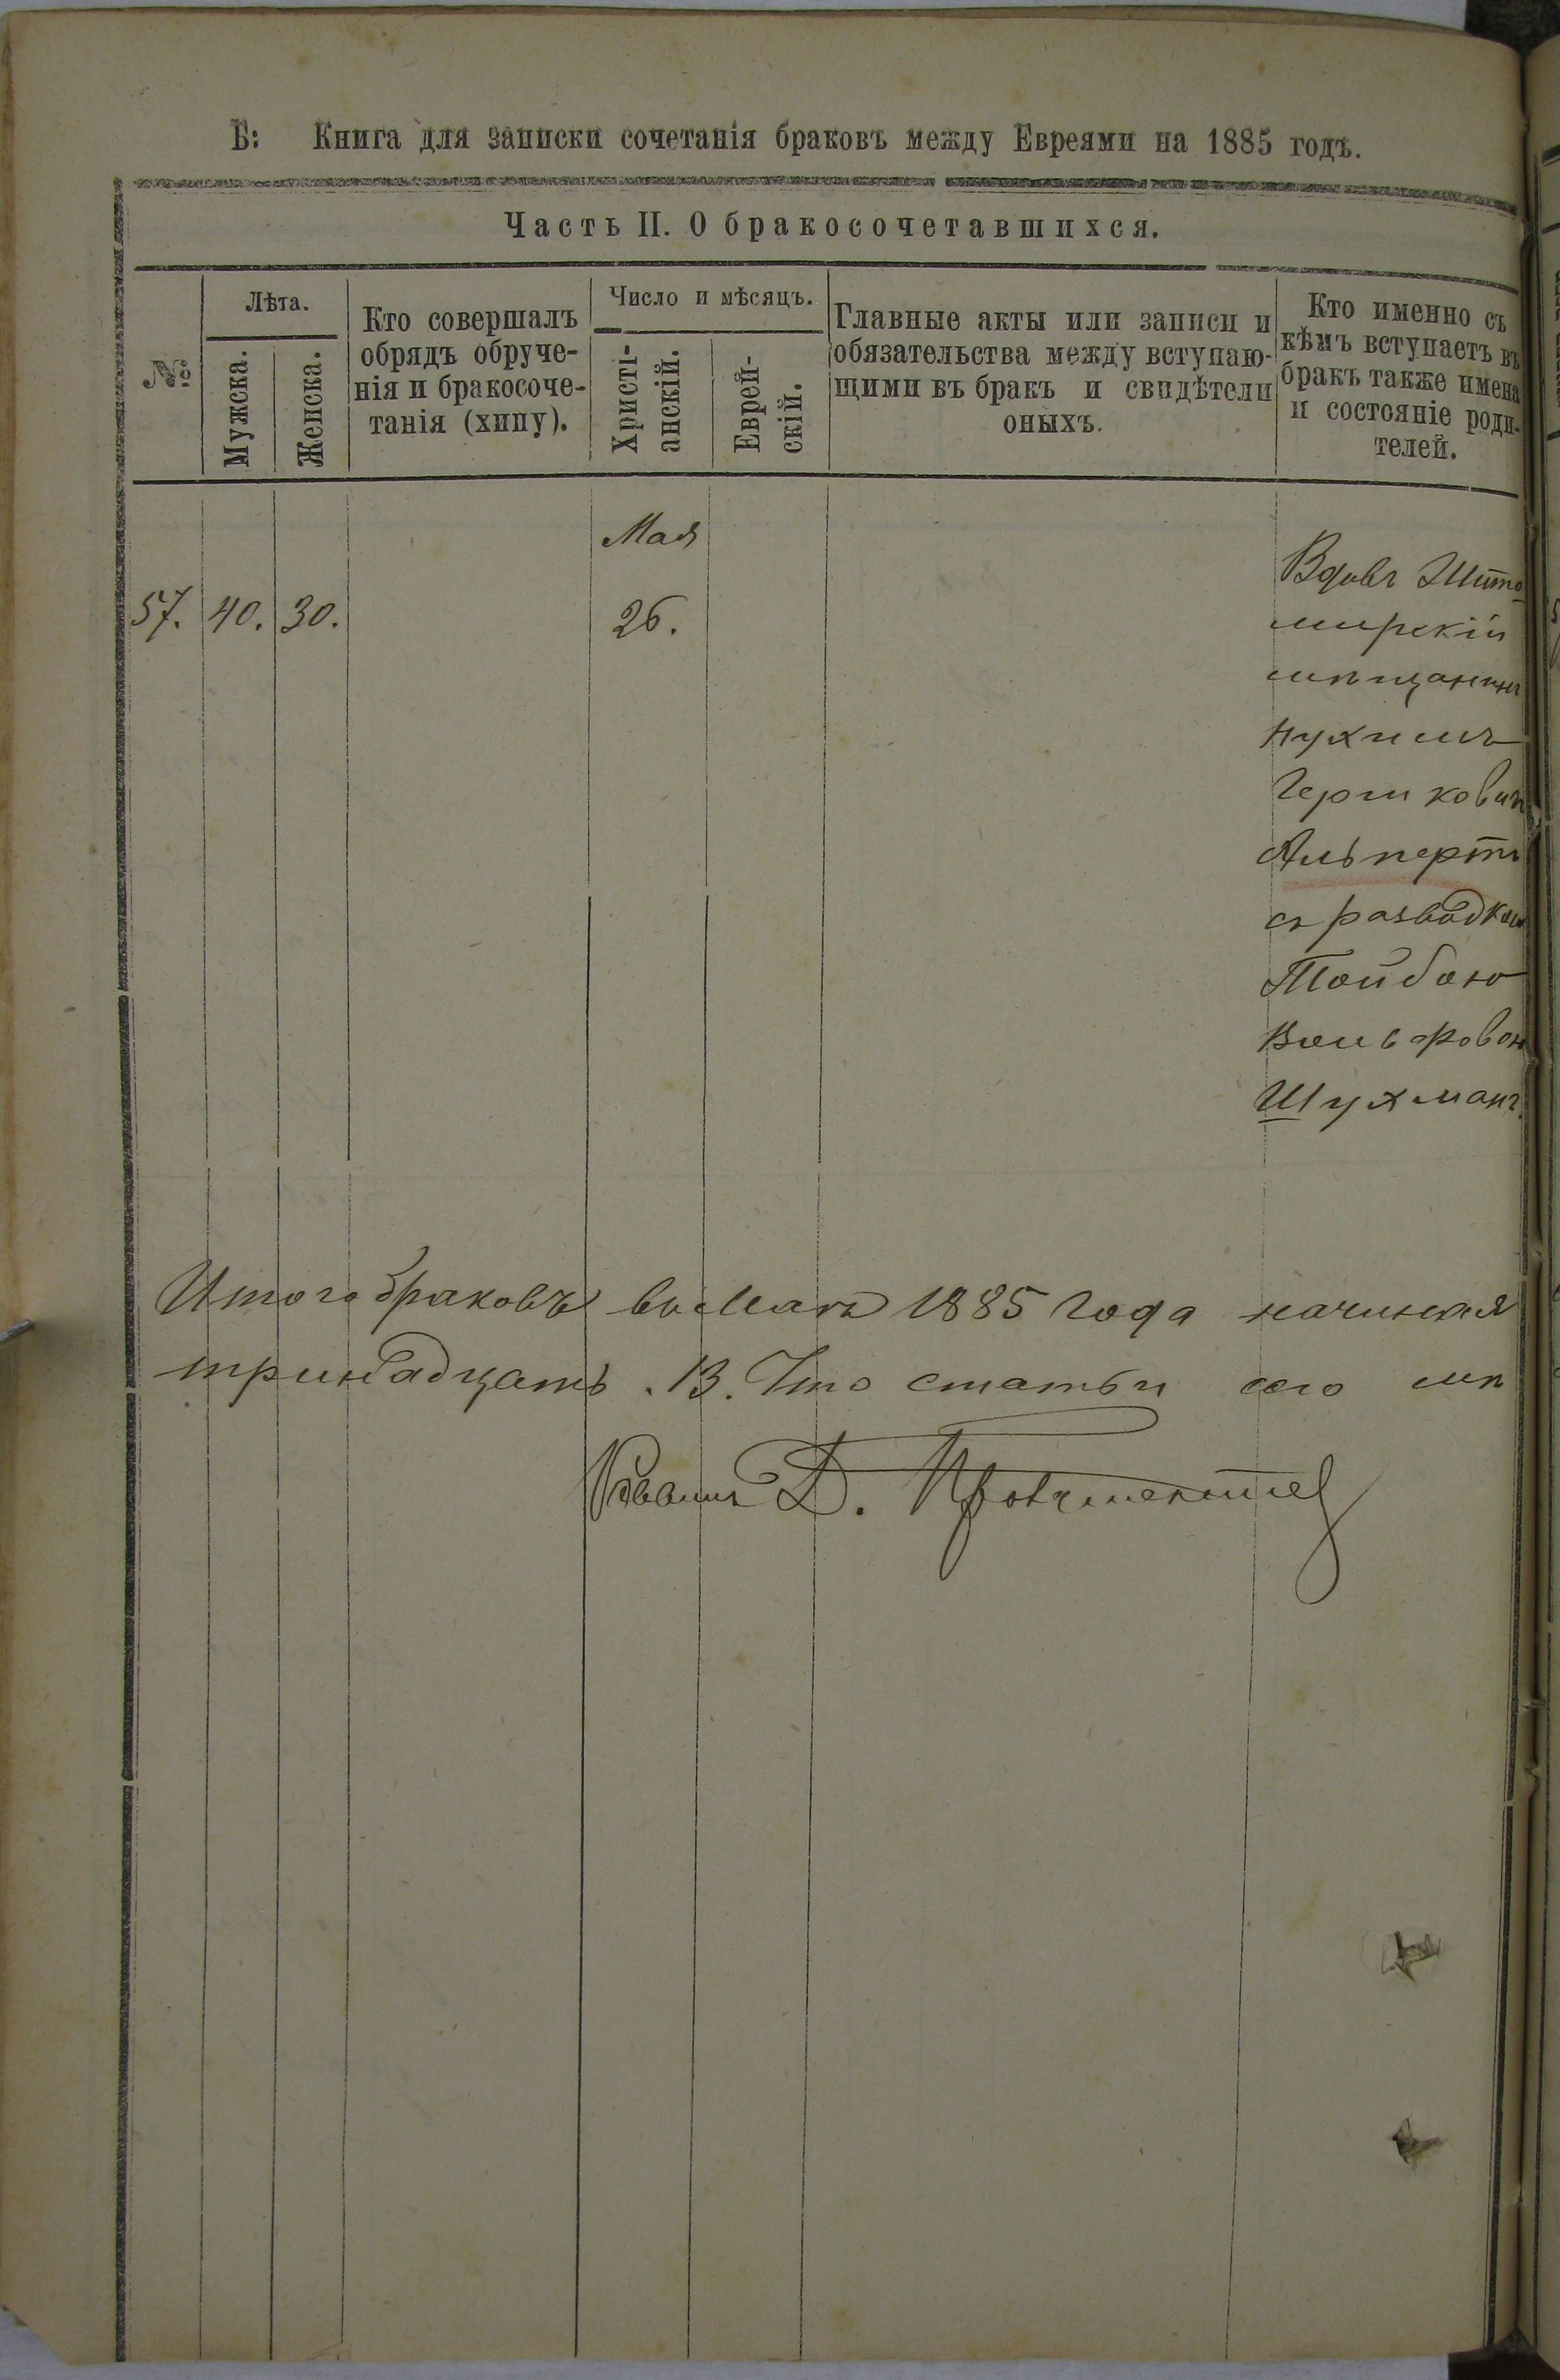 Б: Книга для записки сочетанія браковъ между Евреями на 1885 годъ.
Часть II. О бракосочетавшихся.
№
Лѣта.
Мужска.
Женска.
Кто совершалъ
обрядъ обруче-
нія и бракосоче-
танія (хипу).
Число и мѣсяцъ.
Христі-
анскій.
Еврей-
скій.
Главные акты или записи и
обязательства между вступаю-
щими въ бракъ и свидѣтели
оныхъ.
Кто именно съ
кѣмъ вступаетъ въ
бракъ также имена
и состояніе роди-
телей.
Мая
57. 40. 30. 26.
Вдовъ Жито
мирскій
мѣщанинъ
Нухимъ
Гершкович
Альпертъ
съ разводкою
Тойбою
Вольфовой
Шухманъ.
Итого браковъ въ Маѣ 1885 года начиная
тринадцать. 13. Что статьи сего мѣ
Раввинъ Д.